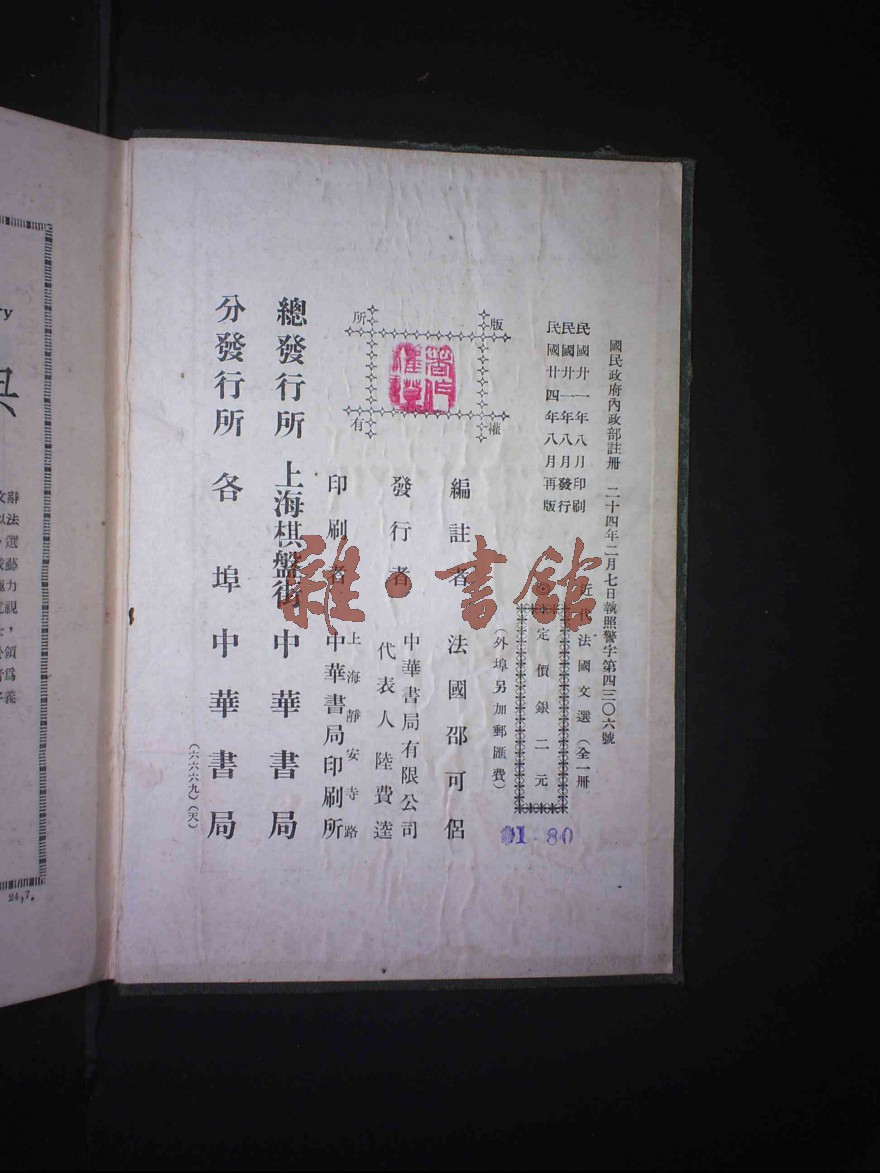 國民政府內政部註冊 二十四年二月七日執照警字第四三〇六號
民國廿一年八月印刷
民國廿一年八月發行
民國廿四年八月再版
近代法國文選（全一冊）
定價銀二元
（外埠另加郵匯費）
01 80
版權所有
編註者 法國邵可侶
發行者 中華書局有限公司
代表人 陸費逵
印刷者 上海靜安寺路
中華書局印刷所
總發行所 上海棋盤街 中華書局
分發行所 各埠中華書局
（六六六九）（天）
雜·書館
24,7.